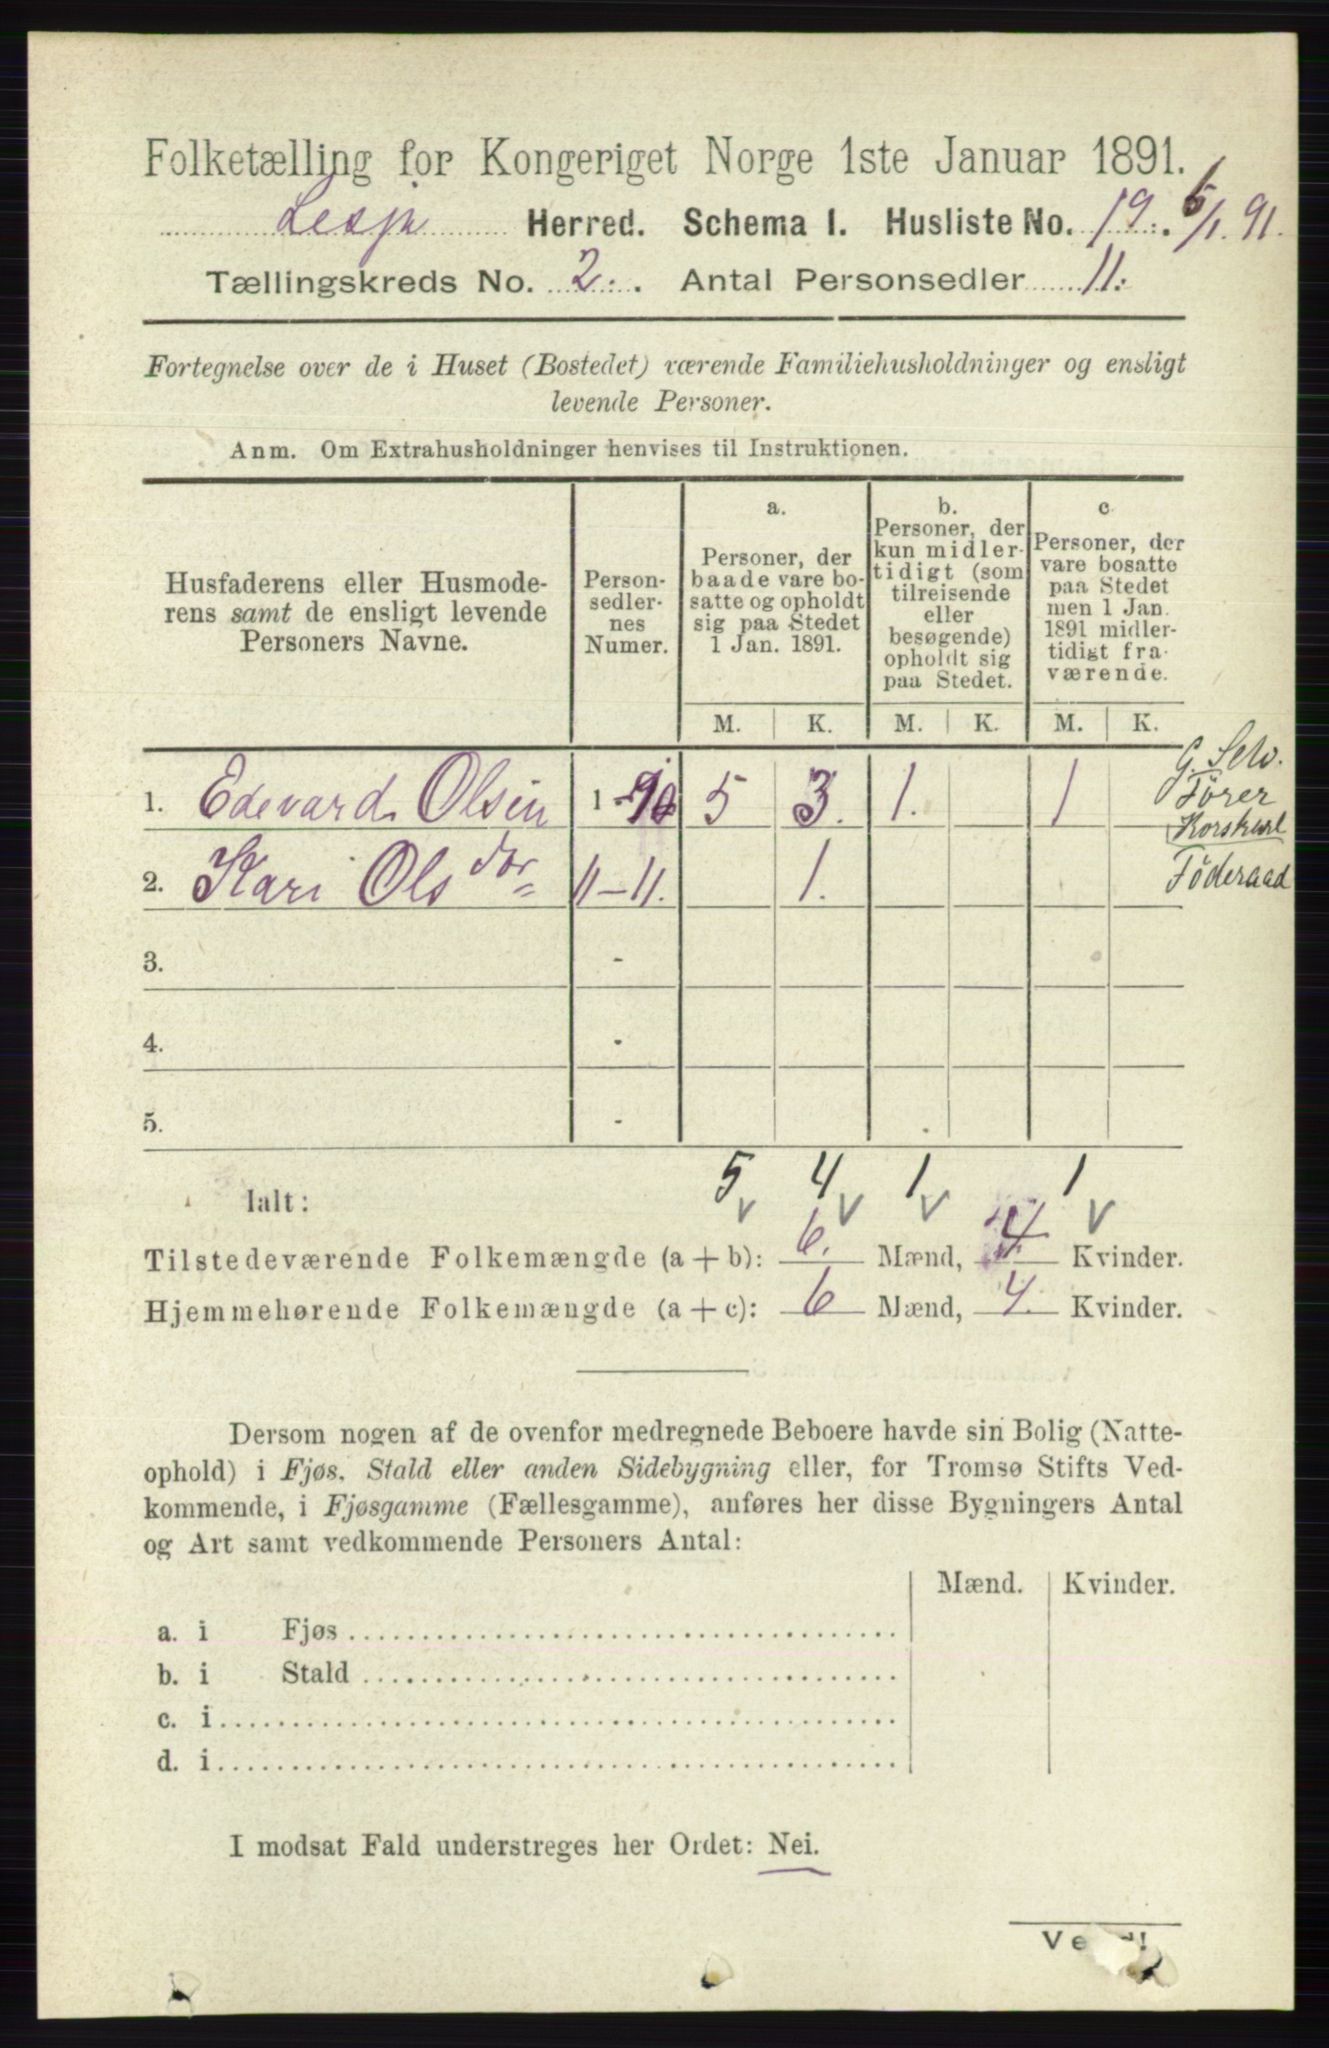 Folketælling for Kongeriget Norge 1ste Januar 1891.
Lesja Herred. Schema I. Husliste No. 19. 5/1.91.
Tællingskreds No. 2. Antal Personsedler 11.
Fortegnelse over de i Huset (Bostedet) værende Familiehusholdninger og ensligt
levende Personer.
Anm. Om Extrahusholdninger henvises til Instruktionen.
Husfaderens eller Husmode-
rens samt de ensligt levende
Personers Navne.
Person-
sedler-
nes
Numer.
a.
Personer, der
baade vare bo-
satte og opholdt
sig paa Stedet
1 Jan. 1891.
b.
Personer, der
kun midler-
tidigt (som
tilreisende
eller
besøgende)
opholdt sig
paa Stedet.
c
Personer, der
vare bosatte
paa Stedet
men 1 Jan.
1891 midler-
tidigt fra-
værende.
M. K. M. K. M. K.
1. Edevard Olsen 1-10 5 3. 1. 1 G. Selv.
Förer
2. Kari Olsdor 11-11. 1. Föderaad
3. -
4. -
5. -
Ialt: 5 4 1 1
Tilstedeværende Folkemængde (a + b): 6. Mænd, 4 Kvinder.
Hjemmehørende Folkemængde (a + c): 6 Mænd, 4. Kvinder.
Dersom nogen af de ovenfor medregnede Beboere havde sin Bolig (Natte-
ophold) i Fjøs, Stald eller anden Sidebygning eller, for Tromsø Stifts Ved-
kommende, i Fjøsgamme (Fællesgamme), anføres her disse Bygningers Antal
og Art samt vedkommende Personers Antal:
Mænd. Kvinder.
a. i Fjøs
b. i Stald
c. i
d. i
I modsat Fald understreges her Ordet: Nei.